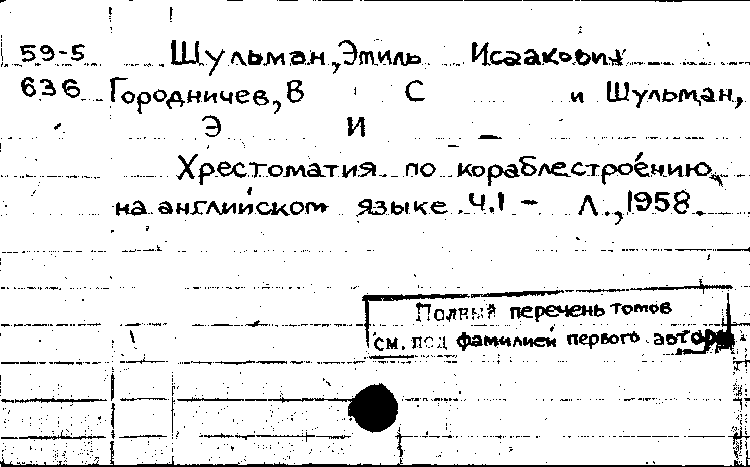 59-5 Шульман, Эмиль Исаакович
636 Городничев, В С и Шульман,
Э И
Хрестоматия по кораблестроению
на английском языке Ч.1 - Л., 1958.
Полный перечень томов
см. под фамилией первого автора